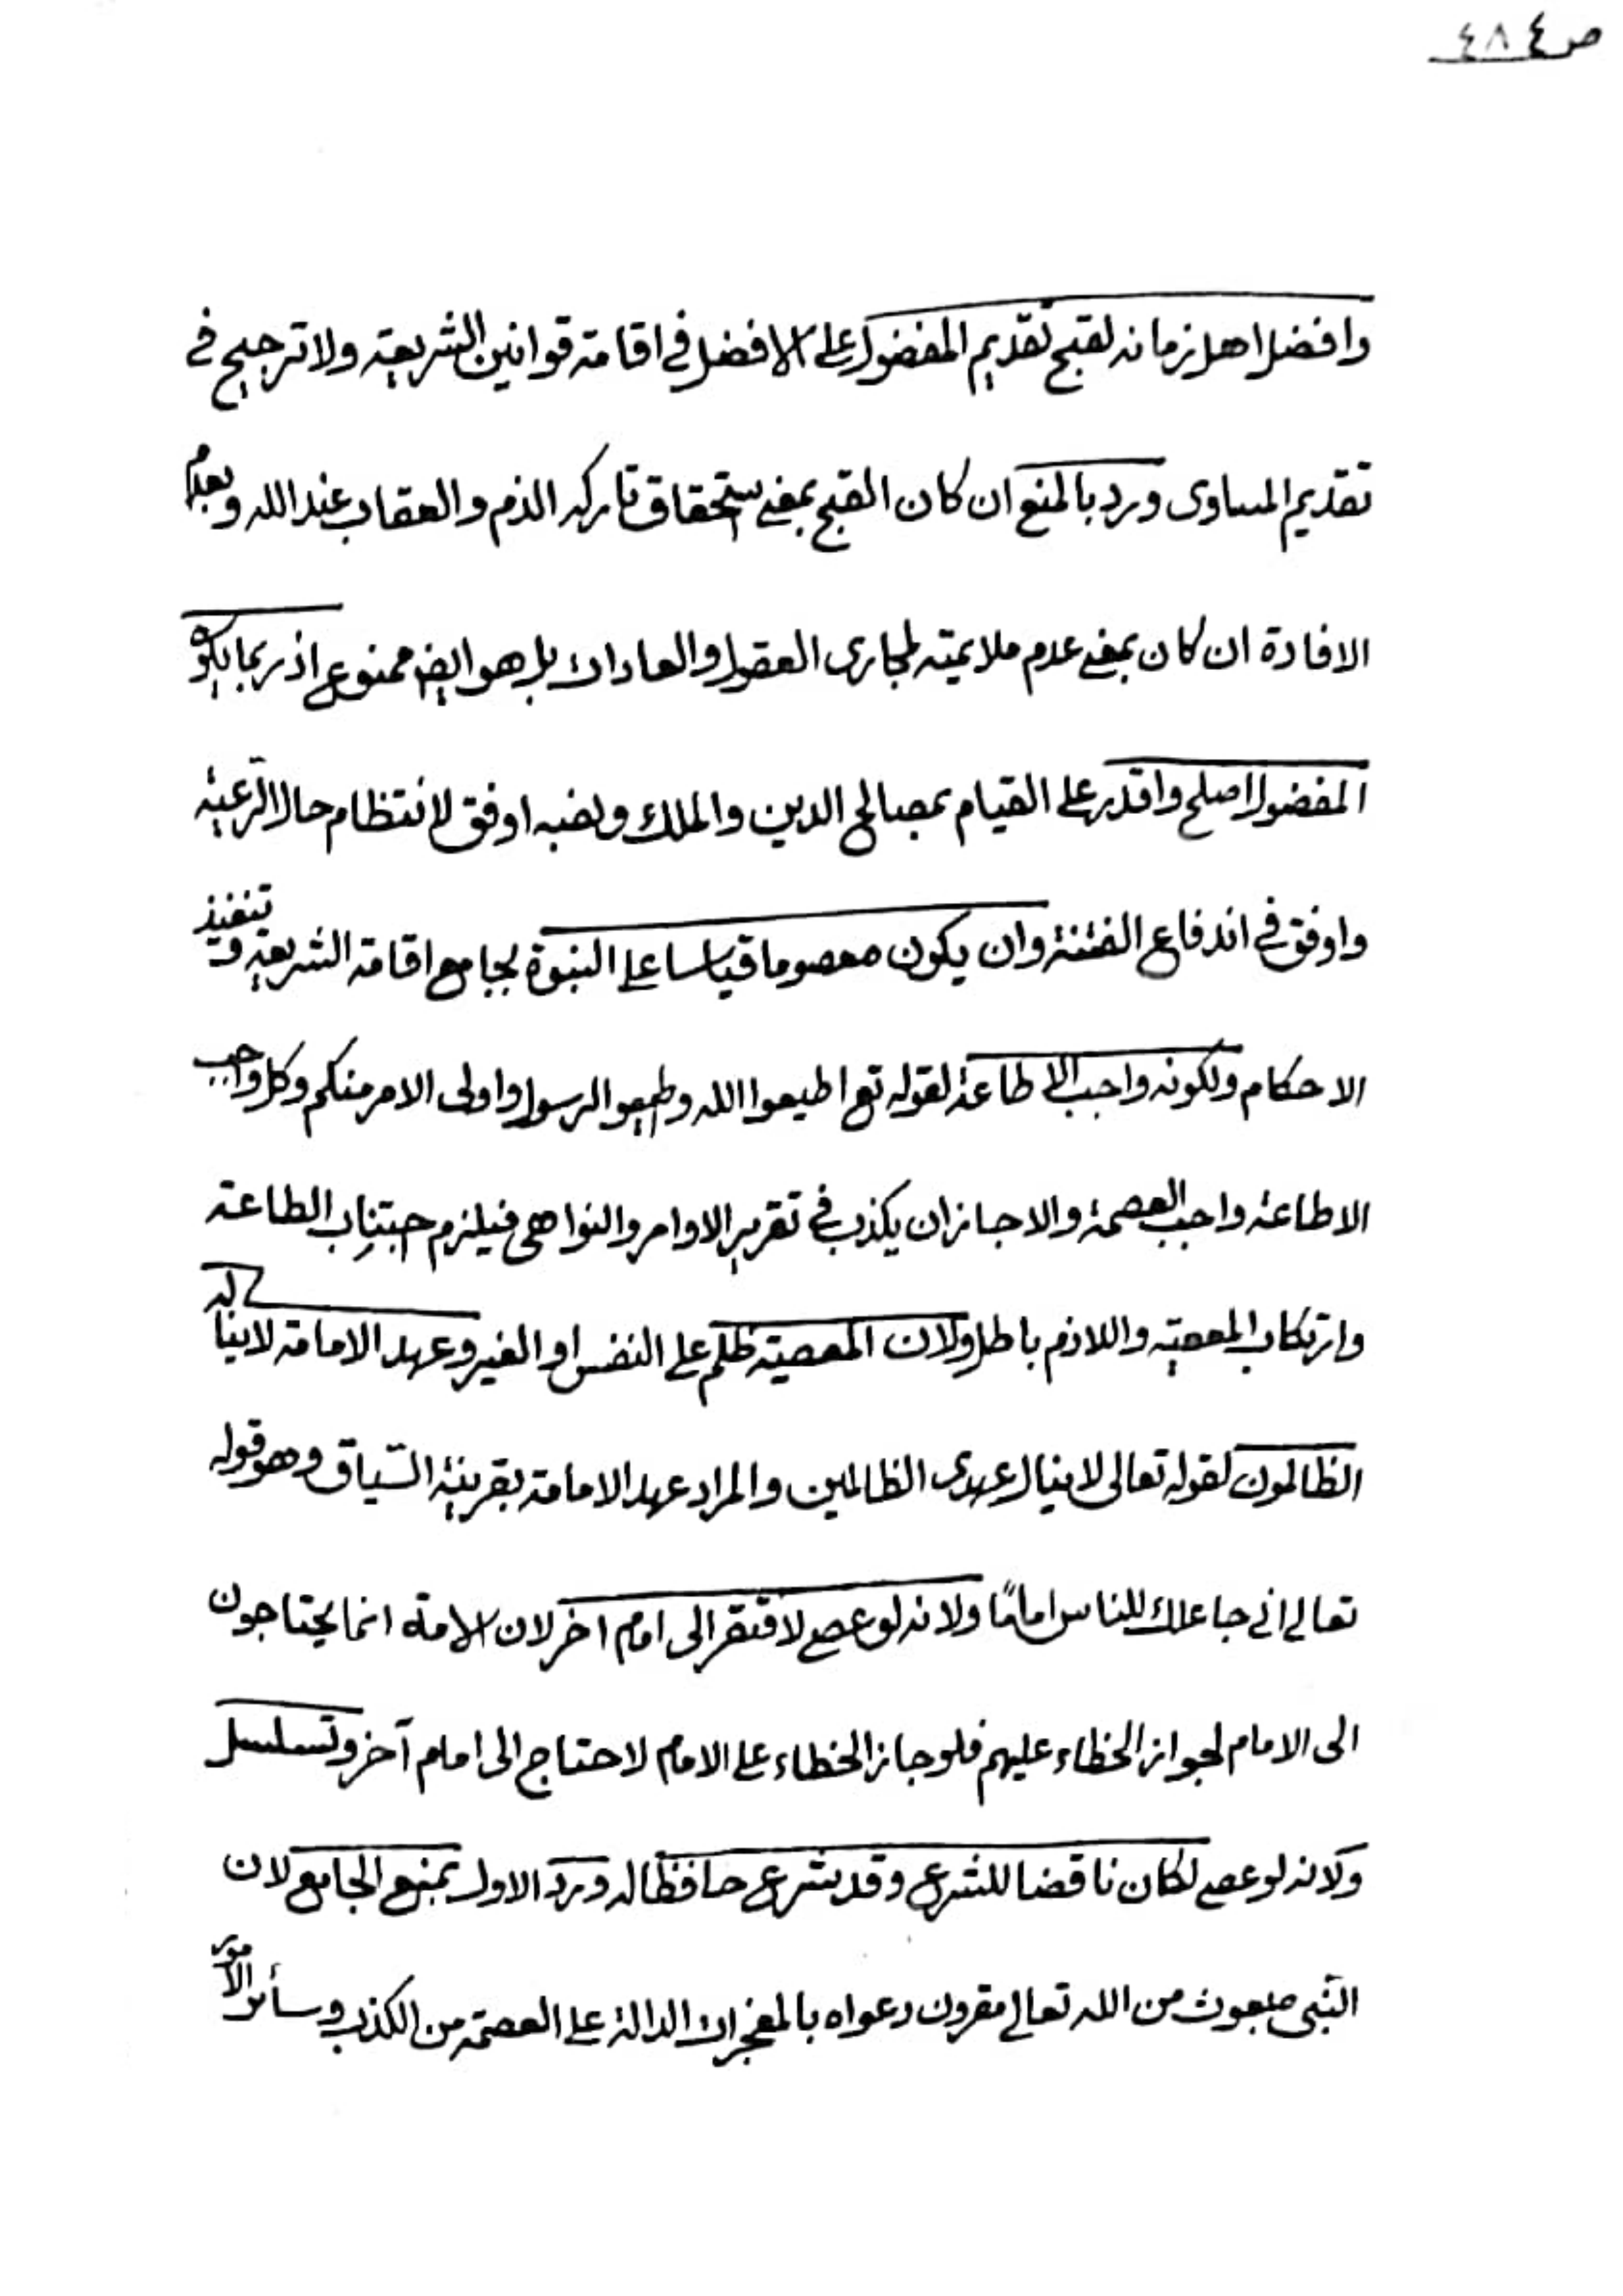 ص ٤٨٤
وافضل اهل زمانه لقبح تقديم المفضول على الافضل في اقامة قوانين الشريعة ولا ترجيح في
تقديم المساوى ورد بالمنع ان كان القبح بمعنى استحقاق تاركه الذم والعقاب عند الله وبعدم
الافادة ان كان بمعنى عدم ملايمته لمجارى العقول والعادات بل هو ايض ممنوع اذ ربما يكون
المفضول اصلح واقدر على القيام بمصالح الدين والملك ونصبه اوفق لانتظام حال الرعية
واوفق في اندفاع الفتنة وان يكون معصوما قياسا على النبوة بجامع اقامة الشريعة وتنفيذ
الاحكام ولكونه واجب الاطاعة لقوله تع اطيعوا الله واطيعوا الرسول واولى الامر منكم وكل واجب
الاطاعة واجب العصمة والا جاز ان يكذب في تقرير الاوامر والنواهى فيلزم اجتناب الطاعة
وارتكاب المعصية واللازم باطل ولان المعصية ظلم على النفس او الغير وعهد الامامة لا يناله
الظالمون لقوله تعالى لا ينال عهدى الظالمين والمراد عهد الامامة بقرينة السّياق وهو قوله
تعالى انى جاعلك للناس امامًا ولانه لو عصى لافتقر الى امام اخر لان الامة انما يحتاجون
الى الامام لجواز الخطاء عليهم فلو جاز الخطاء على الامام لاحتاج الى امام آخر وتسلسل
ولانه لو عصى لكان ناقضا للشرع وقد شرع حافظا له ورد الاول بمنع الجامع لان
النّبى مبعوث من الله تعالى مقرون دعواه بالمعجزات الدالة على العصمة من الكذب وسائر الامور